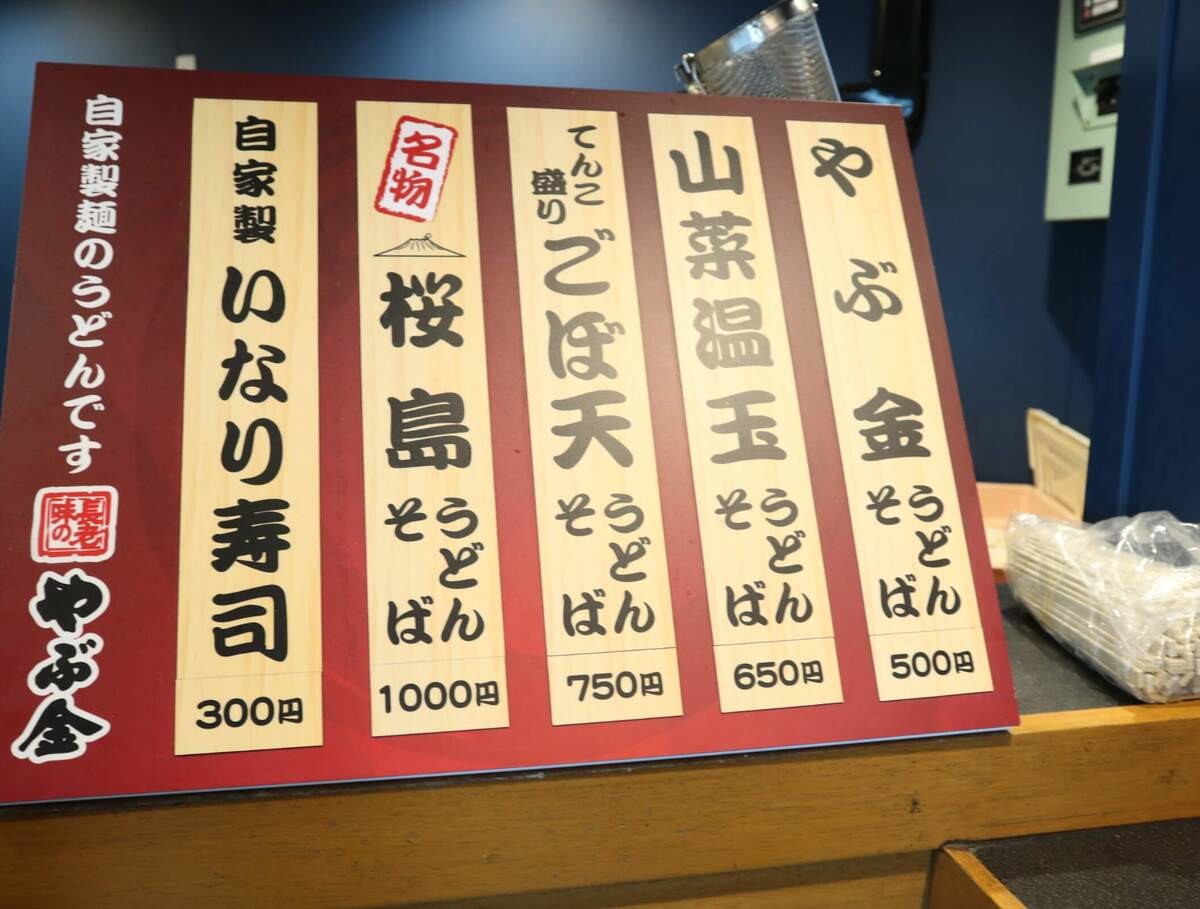 やぶ金
うどん
そば
500円
山菜温玉
うどん
そば
650円
てんこ
盛り
ごぼ天
うどん
そば
750円
名物
桜島
うどん
そば
1000円
自家製
いなり寿司
300円
自家製麺のうどんです
長老
味の
やぶ金